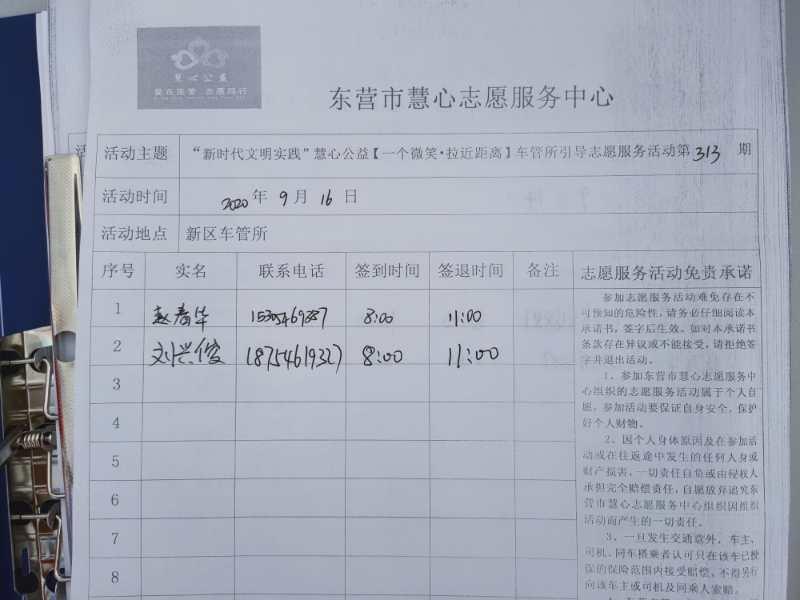 慧心公益
爱在东营 志愿同行
东营市慧心志愿服务中心
活动主题 “新时代文明实践”慧心公益【一个微笑·拉近距离】车管所引导志愿服务活动第 313 期
活动时间 2020 年 9 月 16 日
活动地点 新区车管所
序号 实名 联系电话 签到时间 签退时间 备注 志愿服务活动免责承诺
1 赵春华 8:00 11:00
2 刘兴俊 18754619327 8:00 11:00
3
4
5
6
7
8
参加志愿服务活动难免存在不
可预知的危险性，请务必仔细阅读本
承诺书，签字后生效。如对本承诺书
条款存在异议或不能接受，请拒绝签
字并退出活动。
1、参加东营市慧心志愿服务中
心组织的志愿服务活动属于个人自
愿，参加活动要保证自身安全，保护
好个人财物。
2、因个人身体原因及在参加活
动或在往返途中发生的任何人身或
财产损害，一切责任自负或由侵权人
承担完全赔偿责任，自愿放弃追究东
营市慧心志愿服务中心组织因组织
活动而产生的一切责任。
3、一旦发生交通意外，车主、
司机、同车搭乘者认可只在该车已投
保的保险范围内接受赔偿，不得另行
向该车主或司机及同乘人索赔。